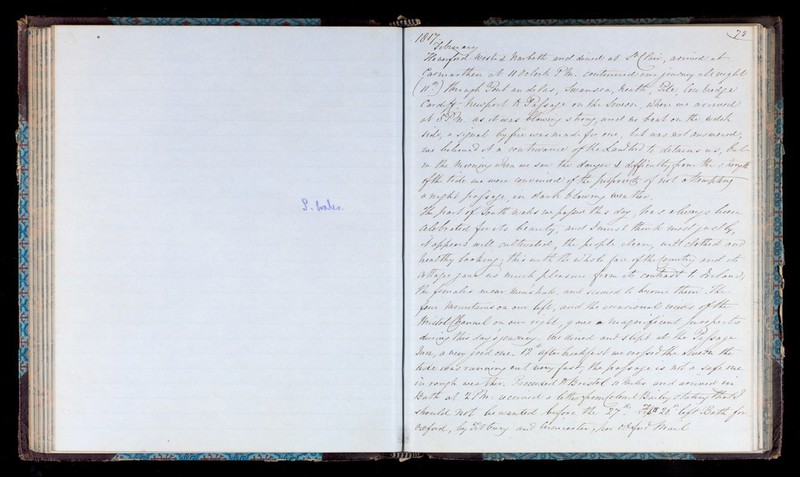 S. Wales.
73
1817
February
Haverford West & Narbeth and dined at St Clair, arrived at
Carmarthen at 11 oClock P.M. continued our journey all night
(11th) through Pont an dilas, Swansea, Neath, Pile, Cowbridge
Cardiff Newport to Passage on the Severn, where we arrived
at 8 P.M. as it was blowing strong, and no boat on the welch
side, a signal by fire was made for one, but was not answered,
we believed it a contrivance of the Landlord to detain us, but
in the Morning when we saw the danger & difficulty from the strength
of the tide we were convinced of the propriety of not attempting
a night passage, in dark blowing weather.
The part of South Wales we passed this day, has always been
celebrated for its beauty, and I must think most justly,
it appears well cultivated, the people clean, well clothed and
healthy looking; this with the whole face of the Country and its
cottages gave us much pleasure from its contrast to Ireland,
the females wear Mens hats, and seemed to become them. The
fine Mountains on our left, and the occasional views of the
Bristol Channel on our right, gave a magnificent prospect
during this days journey. We dined and slept at the Passage
Inn, a very good one. 12th after breakfast we crossed the Severn the
tide was running out very fast, the passage is not a safe one
in rough weather. Proceeded to Bristol 11 Miles and arrived in
Bath at 2 P.M. received a letter from Colonel Barlby stating that I
should not be wanted before the 27th. Feb 20th left Bath for
Oxford, by Tetbury and Cirencester, per Oxford Mail